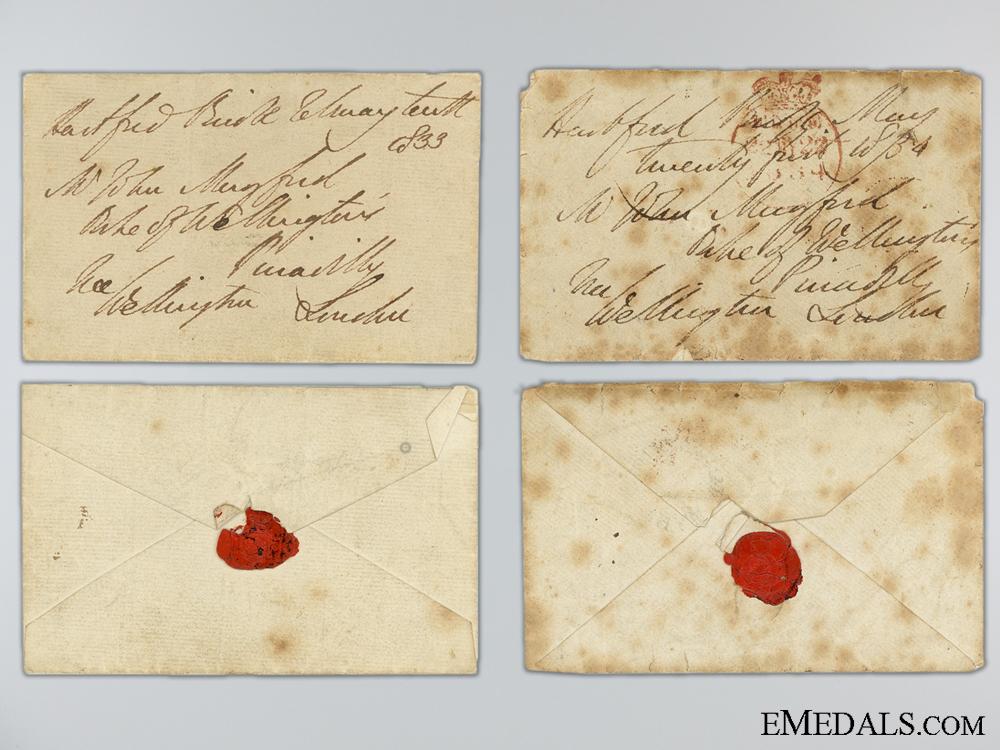 Hartford Bridge Febuary tenth
1833
Mr John Mugford
Duke of Wellington's
Piccadilly
Wellington London
Hartford Bridge May
twenty first 1834
Mr John Mugford
Duke of Wellington's
Piccadilly
Wellington London
EMEDALS.COM